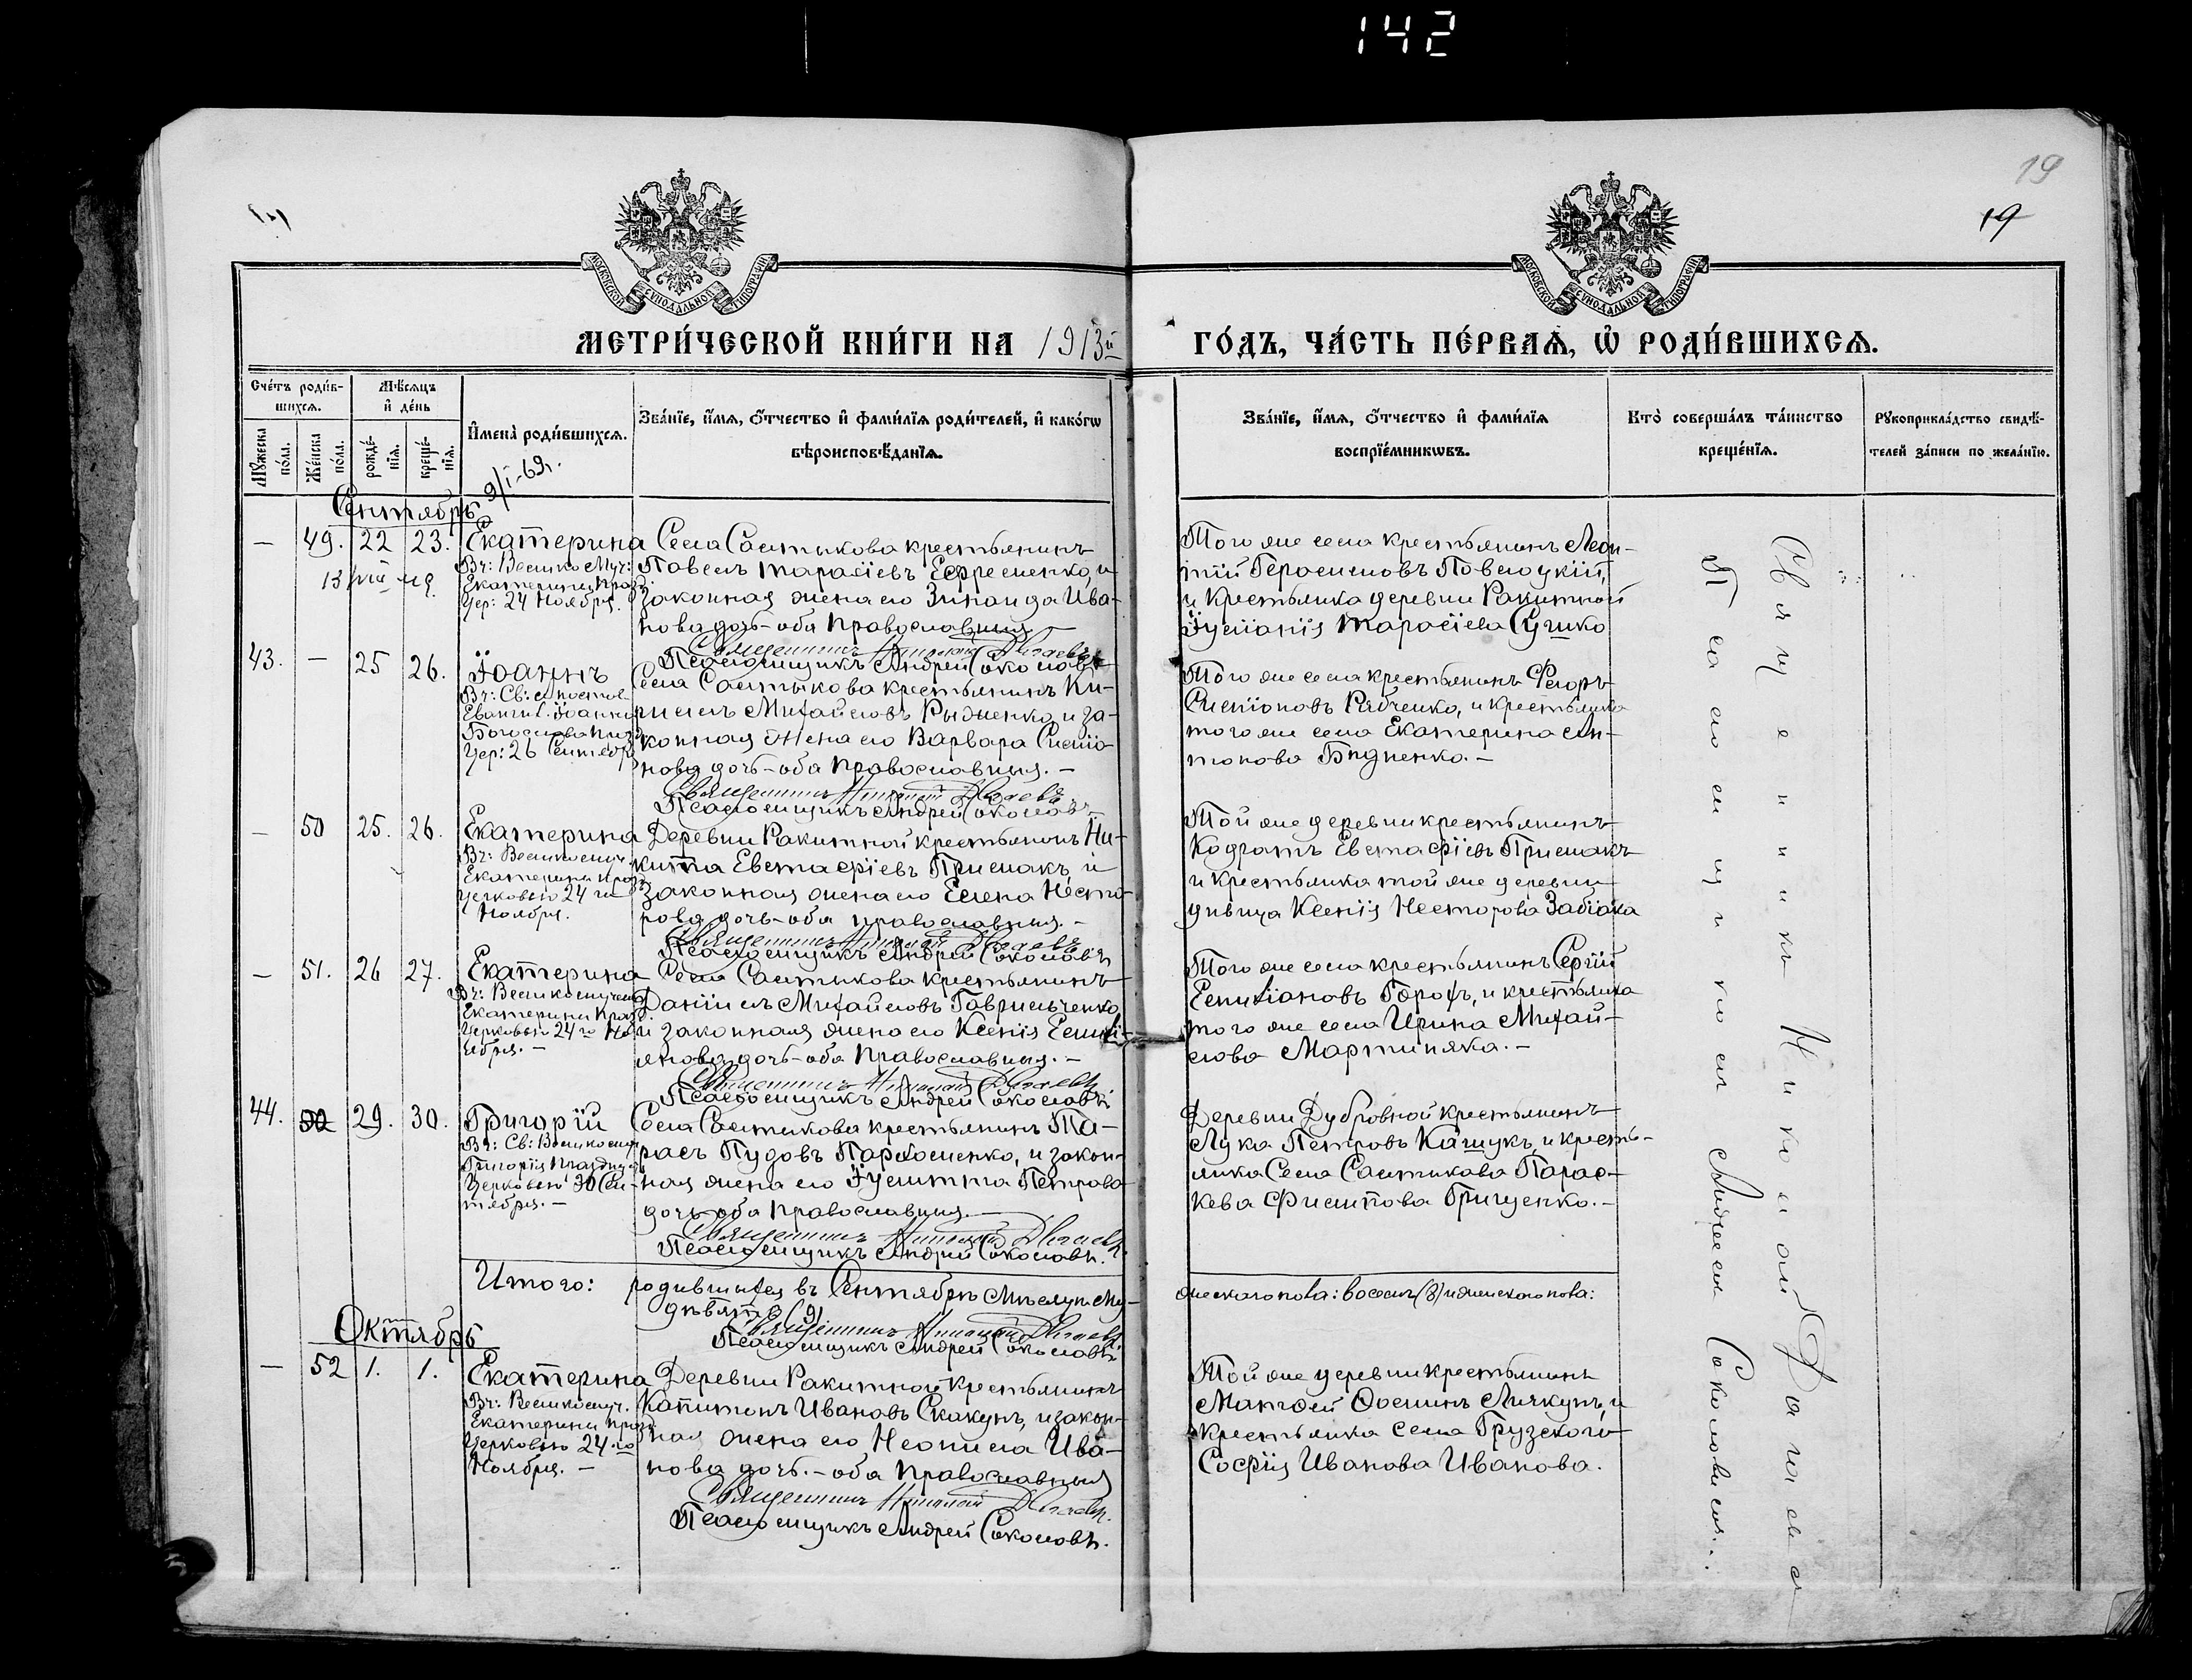 142
19
19
МОСКОВСКОЙ СУНОДАЛЬНОЙ ТИПОГРАФІИ
МОСКОВСКОЙ СУНОДАЛЬНОЙ ТИПОГРАФІИ
МЕТРИ́ЧЕСКОЙ КНИ́ГИ НА 1913й
ГО́ДЪ, ЧА́СТЬ ПЕ́РВАѦ, Ѡ РОДИ́ВШИХСѦ.
Сче́тъ роди́в-
шихсѧ.
Мѣ́сѧцъ
и҆ де́нь
Мꙋ́жеска
по́ла.
Же́нска
по́ла.
рожде́-
нїѧ.
креще́-
нїѧ.
И҆мена̀ роди́вшихсѧ.
Зва́нїе, и҆́мѧ, ѻ҆́тчество и҆ фами́лїѧ роди́телей, и҆ како́гѡ
вѣроисповѣ́данїѧ.
Зва́нїе, и҆́мѧ, ѻ҆́тчество и҆ фами́лїѧ
воспрїе́мникѡвъ.
Кто̀ соверша́лъ та́инство
креще́нїѧ.
Рꙋкоприкла́дство свидѣ́-
телей за́писи по жела́нїю.
9/I-69г.
Сентябрь
— 49. 22 23. Екатерина
Вч: Велико Муч:
Екатерины Праз.
Цер: 24 Ноября.
Села Салтыкова крестьянинъ
Павелъ Тарасіевъ Ефременко, и
законная жена его Зинаида Ива-
нова дочь - оба Православныя —
Священникъ Николай
Псаломщикъ Андрей Соколовъ
Того же села крестьянинъ Леон-
тій Герасимовъ Павлоцкій,
и крестьянка деревни Ракитной
Іуліанія Тарасіева Сушко
43. — 25 26. Іоаннъ
Вч: Св: Апостол.
Евангел. Іоанна
Богослова праз.
Цер: 26 Сентябр.
Села Салтыкова крестьянинъ Ки-
риллъ Михайловъ Рыженко, и за-
конная жена его Варвара Симіо-
нова дочь - оба Православныя. —
Священникъ Николай
Псаломщикъ Андрей Соколовъ
Того же села крестьянинъ Феодоръ
Симіоновъ Рябченко, и крестьянка
того же села Екатерина Ан-
тонова Бидненко. —
— 50 25. 26. Екатерина
Вч: Великомуч.
Екатерины праз.
церковью 24 го
Ноября.
Деревни Ракитной крестьянинъ Ни-
кита Евстафіевъ Примакъ, и
законная жена его Елена Несто-
рова дочь - оба православныя. —
Священникъ Николай
Псаломщикъ Андрей Соколовъ
Той же деревни крестьянинъ
Кодратъ Евстафіевъ Примакъ
и крестьянка той же деревни
дѣвица Ксенія Несторова Забіака
— 51. 26 27. Екатерина
Вч: Великомучен.
Екатерины Праз.
Церковью 24 го Но-
ября. —
Села Салтыкова крестьянинъ
Даніилъ Михайловъ Гаврильченко,
и законная жена его Ксенія Емилі-
янова дочь - оба Православныя. —
Священникъ Николай
Псаломщикъ Андрей Соколовъ
Того же села крестьянинъ Сергій
Емиліановъ Горохъ, и крестьянка
того же села Ирина Михай-
лова Мартиняка. —
44. 29. 30. Григорій
Вч: Св: Великомуч
Григорія празднуем
Церковью 30 Сен-
тября. —
Села Салтыкова крестьянинъ Та-
расъ Пудовъ Пархоменко, и закон-
ная жена его Іулитта Петрова
дочь оба православныя. —
Священникъ Николай
Псаломщикъ Андрей Соколовъ.
Деревни Дубровной крестьянинъ
Лука Петровъ Кашукъ, и кресть-
янка Села Салтыкова Парас-
кева Филипова Грищенко. —
Итого: родившихся въ Сентябрѣ Мѣсяцѣ Му-
жескаго пола: восемь (8) и женскаго пола:
девять (9)
Священникъ Николай
Псаломщикъ Андрей Соколовъ
Октябрь
— 52 1. 1. Екатерина
Вч: Великомуч.
Екатерины праз.
Церковью 24. го
Ноября. —
Деревни Ракитной крестьянинъ
Капитонъ Ивановъ Скакунъ, и закон-
ная жена его Неонила Ива-
нова дочь. - оба православныя
Священникъ Николай
Псаломщикъ Андрей Соколовъ.
Той же деревни крестьянинъ
Матфей Фоминъ Лячкунъ, и
крестьянка села Грузского
Софія Иванова Иванова.
Священникъ Николай
Псаломщикомъ Андреем Соколовым.